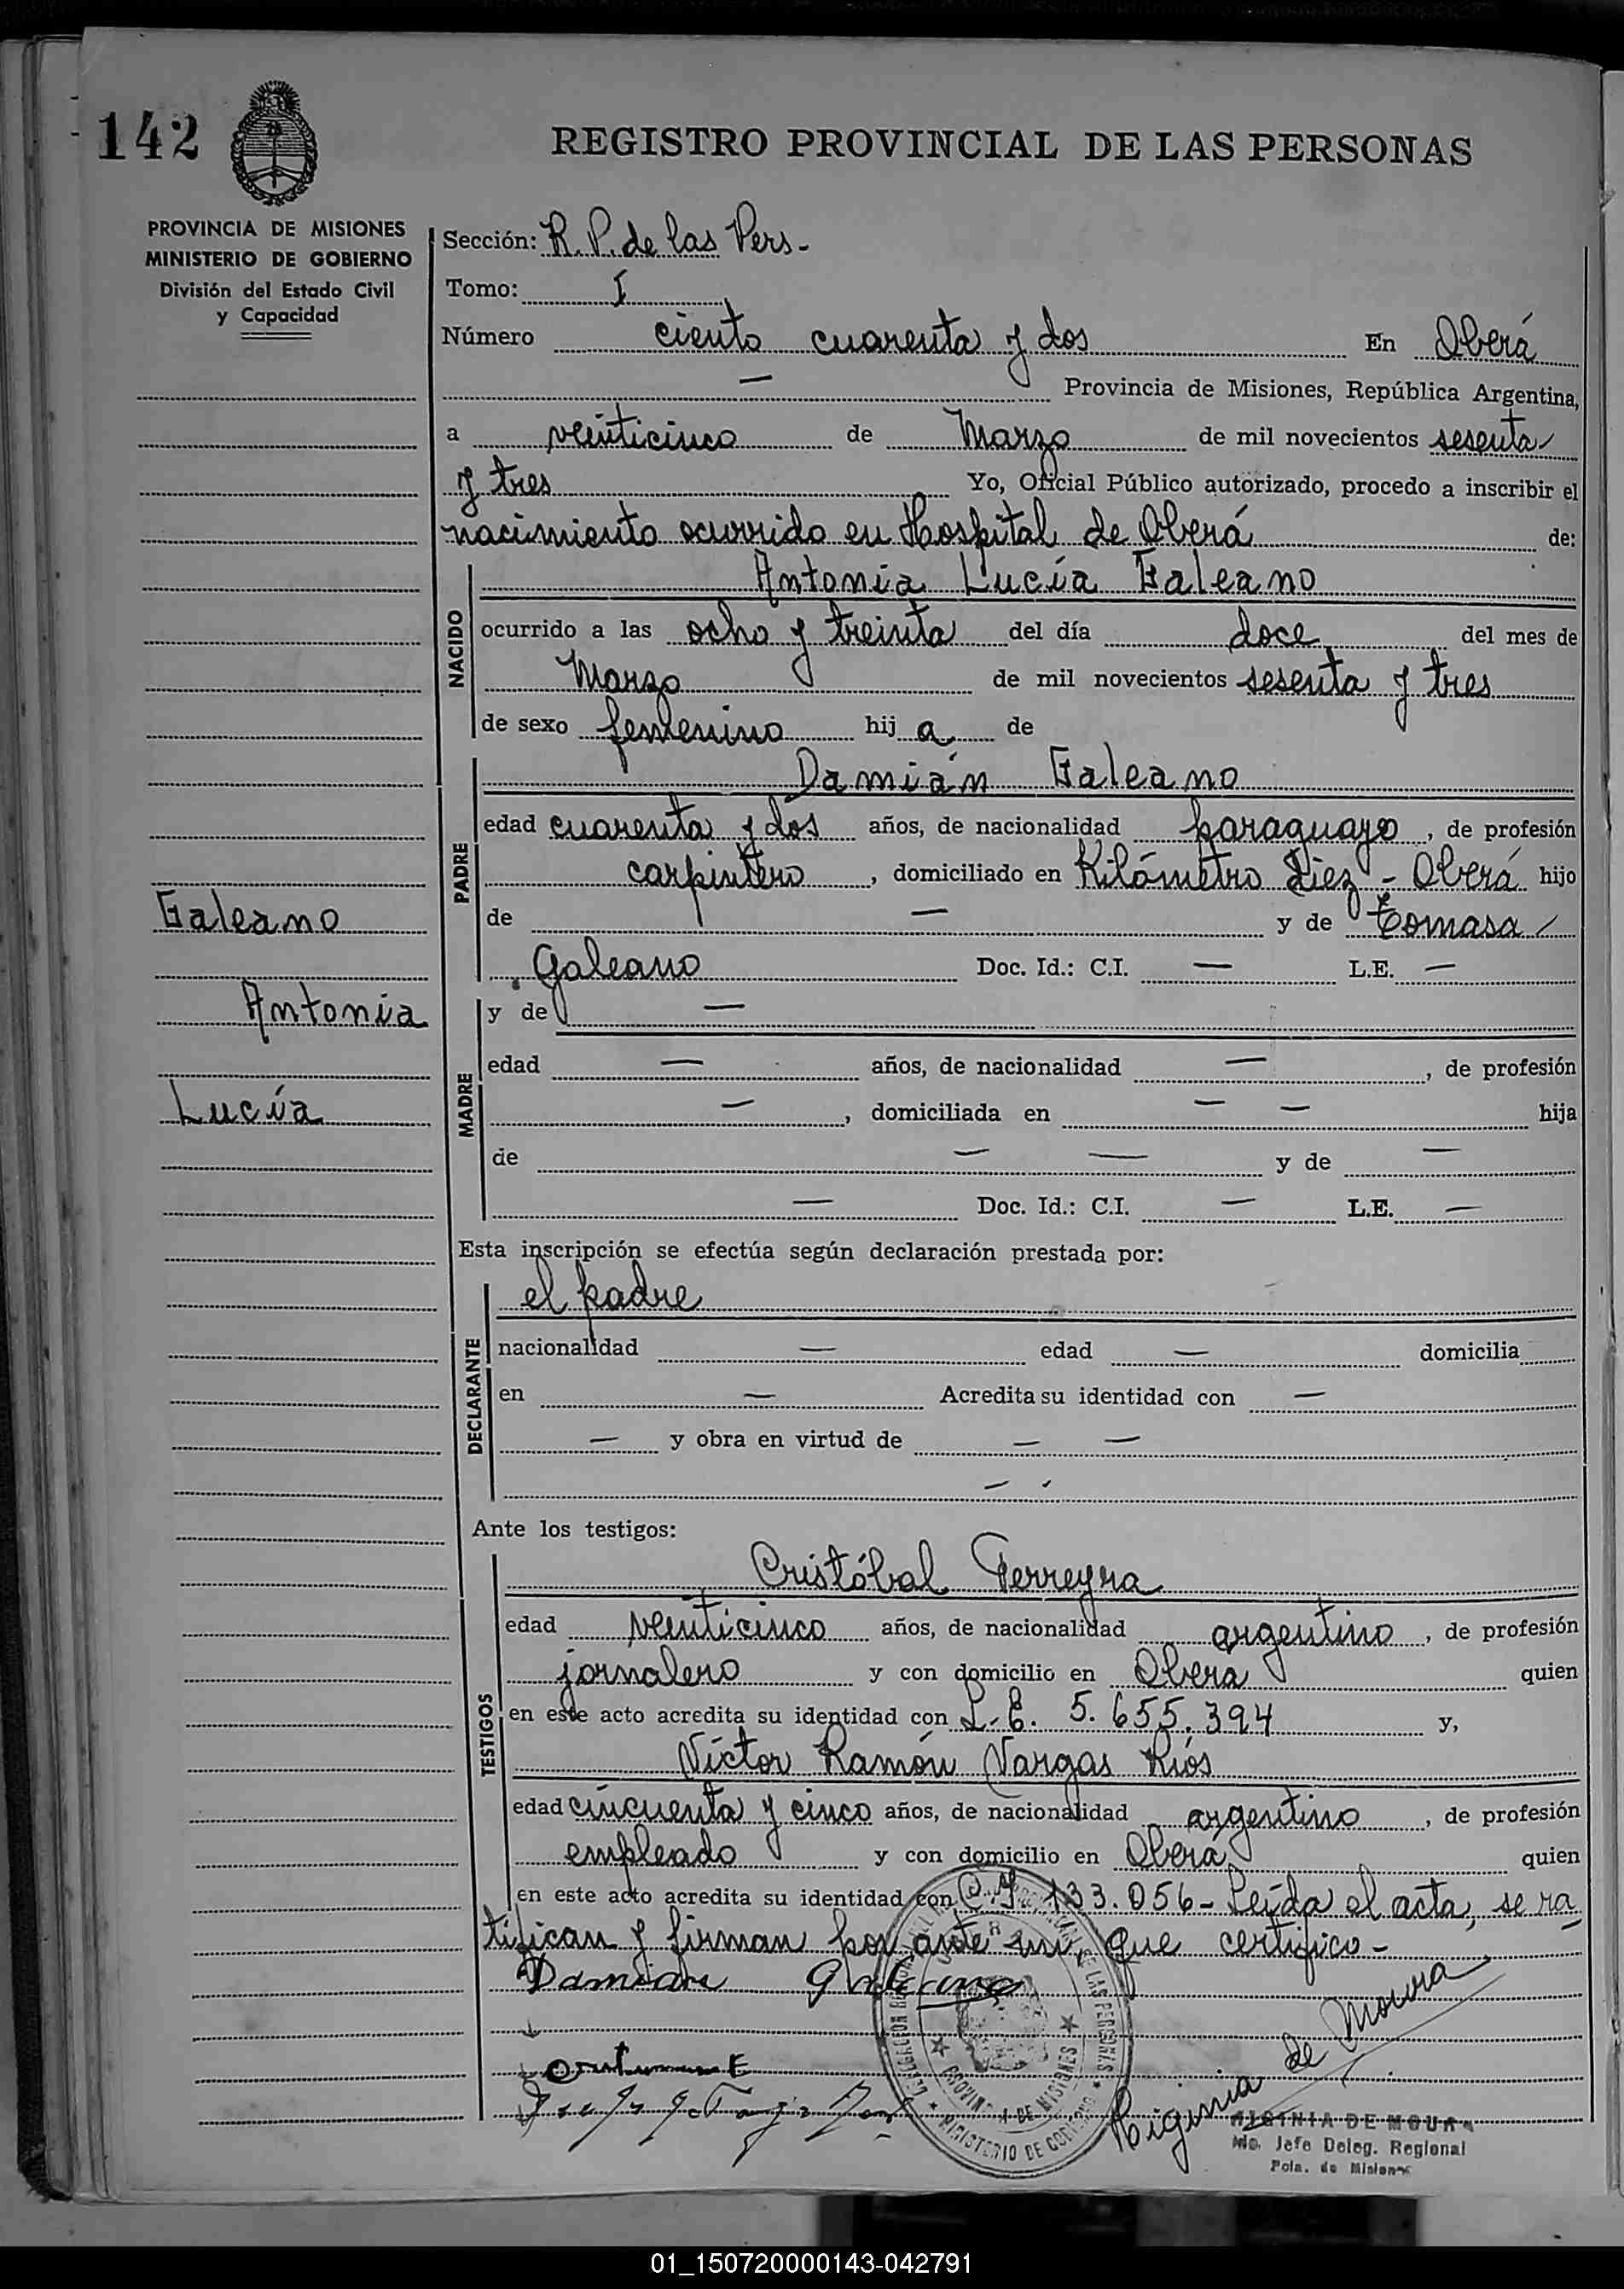 142
REGISTRO PROVINCIAL DE LAS PERSONAS
PROVINCIA DE MISIONES
MINISTERIO DE GOBIERNO
División del Estado Civil
y Capacidad
Sección: R. P. de las Pers-
Tomo: I
Número ciento cuarenta y dos En Oberá
— Provincia de Misiones, República Argentina,
a veinticinco de Marzo de mil novecientos sesenta
y tres Yo, Oficial Público autorizado, procedo a inscribir el
nacimiento ocurrido en Hospital de Oberá de:
NACIDO
Antonia Lucía Galeano
ocurrido a las ocho y treinta del día doce del mes de
Marzo de mil novecientos sesenta y tres
de sexo femenino hij a de
PADRE
Damián Galeano
edad cuarenta y dos años, de nacionalidad paraguayo, de profesión
carpintero, domiciliado en Kilómetro Diez - Oberá hijo
de — y de Tomasa
Galeano Doc. Id.: C.I. — L.E. —
Galeano
Antonia
Lucía
MADRE
y de —
edad — años, de nacionalidad —, de profesión
—, domiciliada en — — hija
de — — y de —
— Doc. Id.: C.I. — L.E. —
Esta inscripción se efectúa según declaración prestada por:
DECLARANTE
el padre
nacionalidad — edad — domicilia
en — Acredita su identidad con —
— y obra en virtud de — —
Ante los testigos:
TESTIGOS
Cristóbal Ferreyra
edad veinticinco años, de nacionalidad argentino, de profesión
jornalero y con domicilio en Oberá quien
en este acto acredita su identidad con L. E. 5.655.394 y,
Víctor Ramón Vargas Ríos
edad cincuenta y cinco años, de nacionalidad argentino, de profesión
empleado y con domicilio en Oberá quien
en este acto acredita su identidad con C. I. 133.056- Leída el acta, se ra
tifican y firman por ante mí, que certifico-
Damian Galeano
Higinia de Moura
HIGINIA DE MOURA
Jefe Deleg. Regional
Pcia. de Misiones
PROVINCIA DE MISIONES
MINISTERIO DE GOBIERNO
01_150720000143-042791